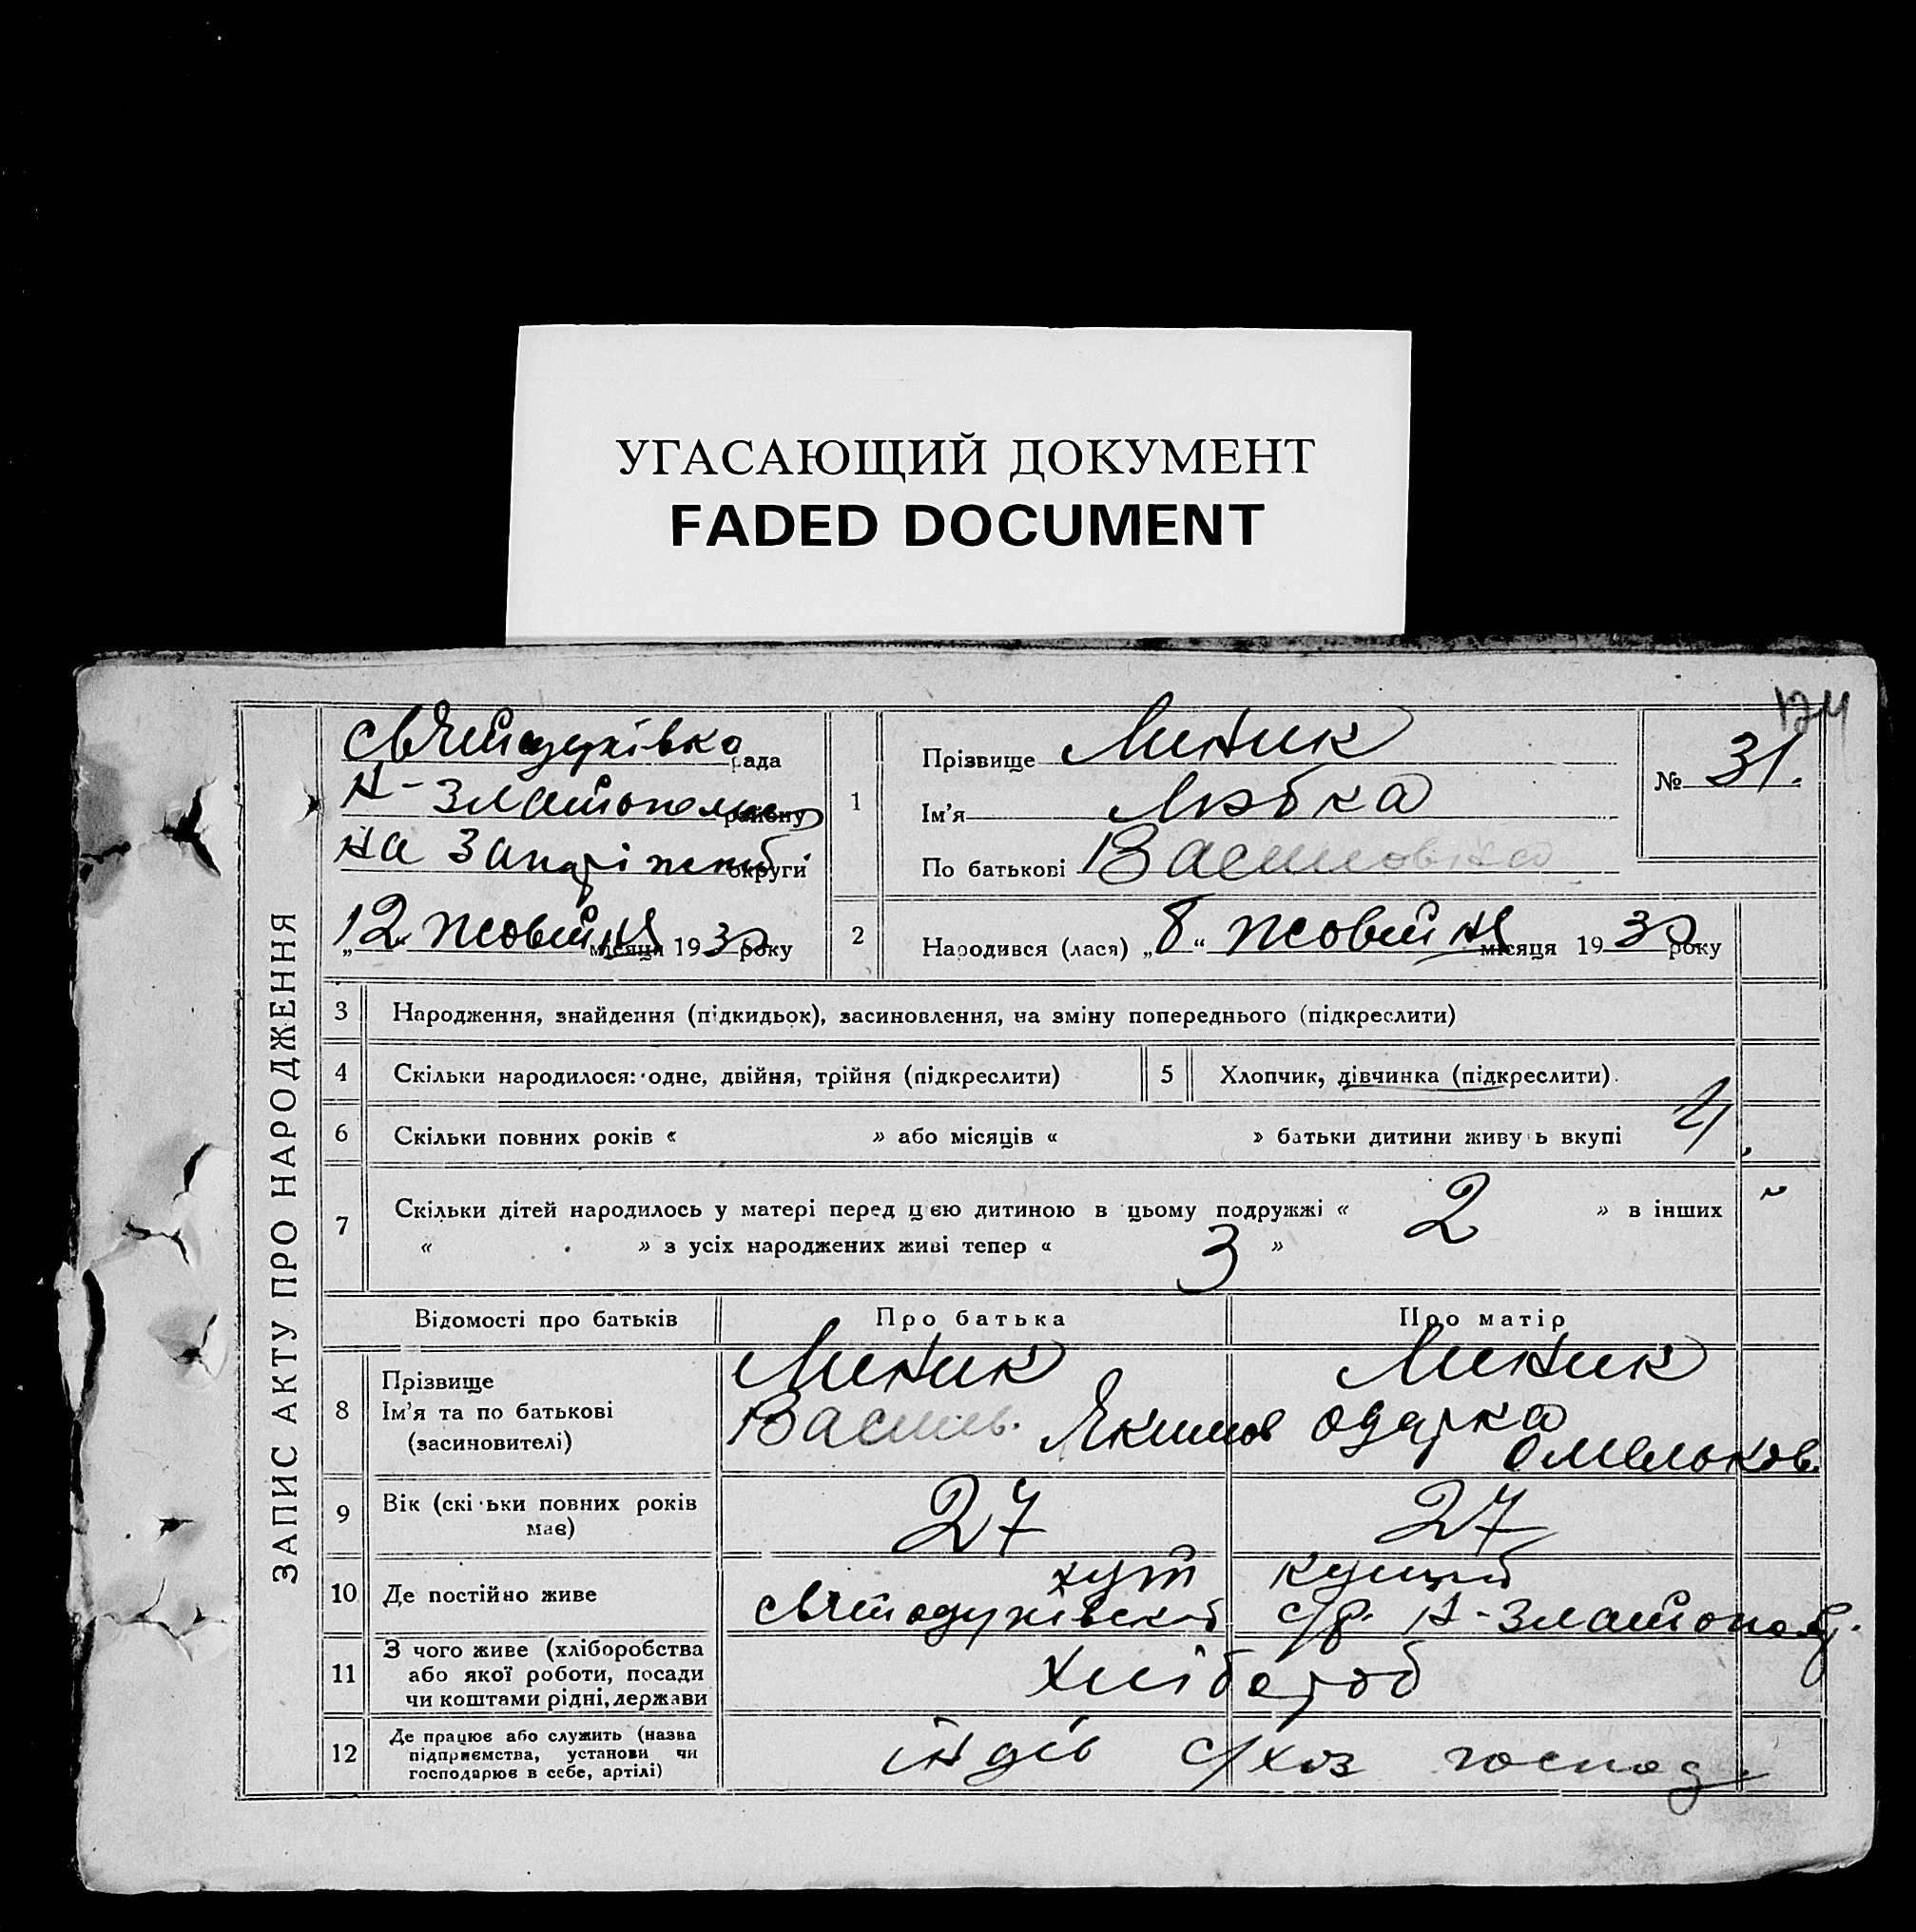 УГАСАЮЩИЙ ДОКУМЕНТ
FADED DOCUMENT
174
ЗАПИС АКТУ ПРО НАРОДЖЕННЯ
Свѧтодухівка рада
Н-Златопольс району
на Запоріжжі округи
„12“ жовтня місяця 1930 року
1
Прізвище Линник
Ім’я Любка
По батькові Василовна
№ 31.
2
Народився (лася) „8“ жовтня місяця 1930 року
3 Народження, знайдення (підкидьок), засиновлення, на зміну попереднього (підкреслити)
4 Скільки народилося: одне, двійня, трійня (підкреслити)
5 Хлопчик, дівчинка (підкреслити).
6 Скільки повних років « » або місяців « » батьки дитини живуть вкупі 4.
7 Скільки дітей народилось у матері перед цією дитиною в цьому подружжі « 2 » в інших
« » з усіх народжених живі тепер « 3 »
Відомості про батьків Про батька Про матір
8 Прізвище
Ім’я та по батькові
(засиновителі)
Линник
Василь. Якимов
Линник
Одарка
Омельков.
9 Вік (скільки повних років
має)
27 27
10 Де постійно живе
хут
Святодухівской с/р. Н-Златопол.
11 З чого живе (хліборобства
або якої роботи, посади
чи коштами рідні, держави
хлібороб
12 Де працює або служить (назва
підприємства, установи чи
господарює в себе, артілі)
індів с/хоз господ.